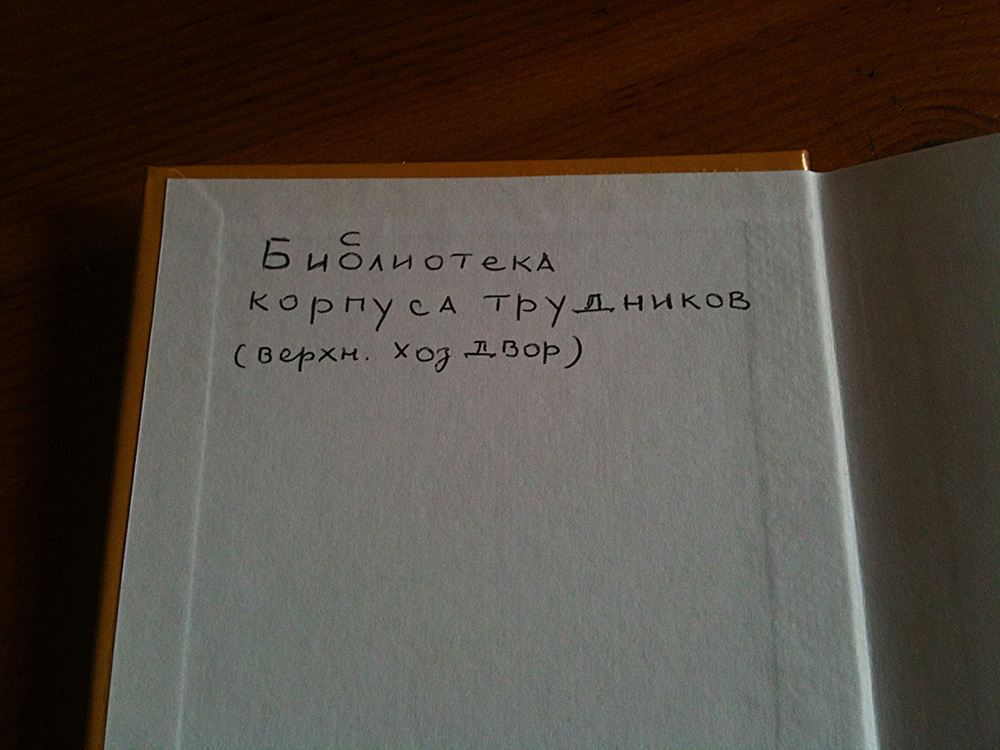 Библиотека
корпуса трудников
(верхн. хоз двор)